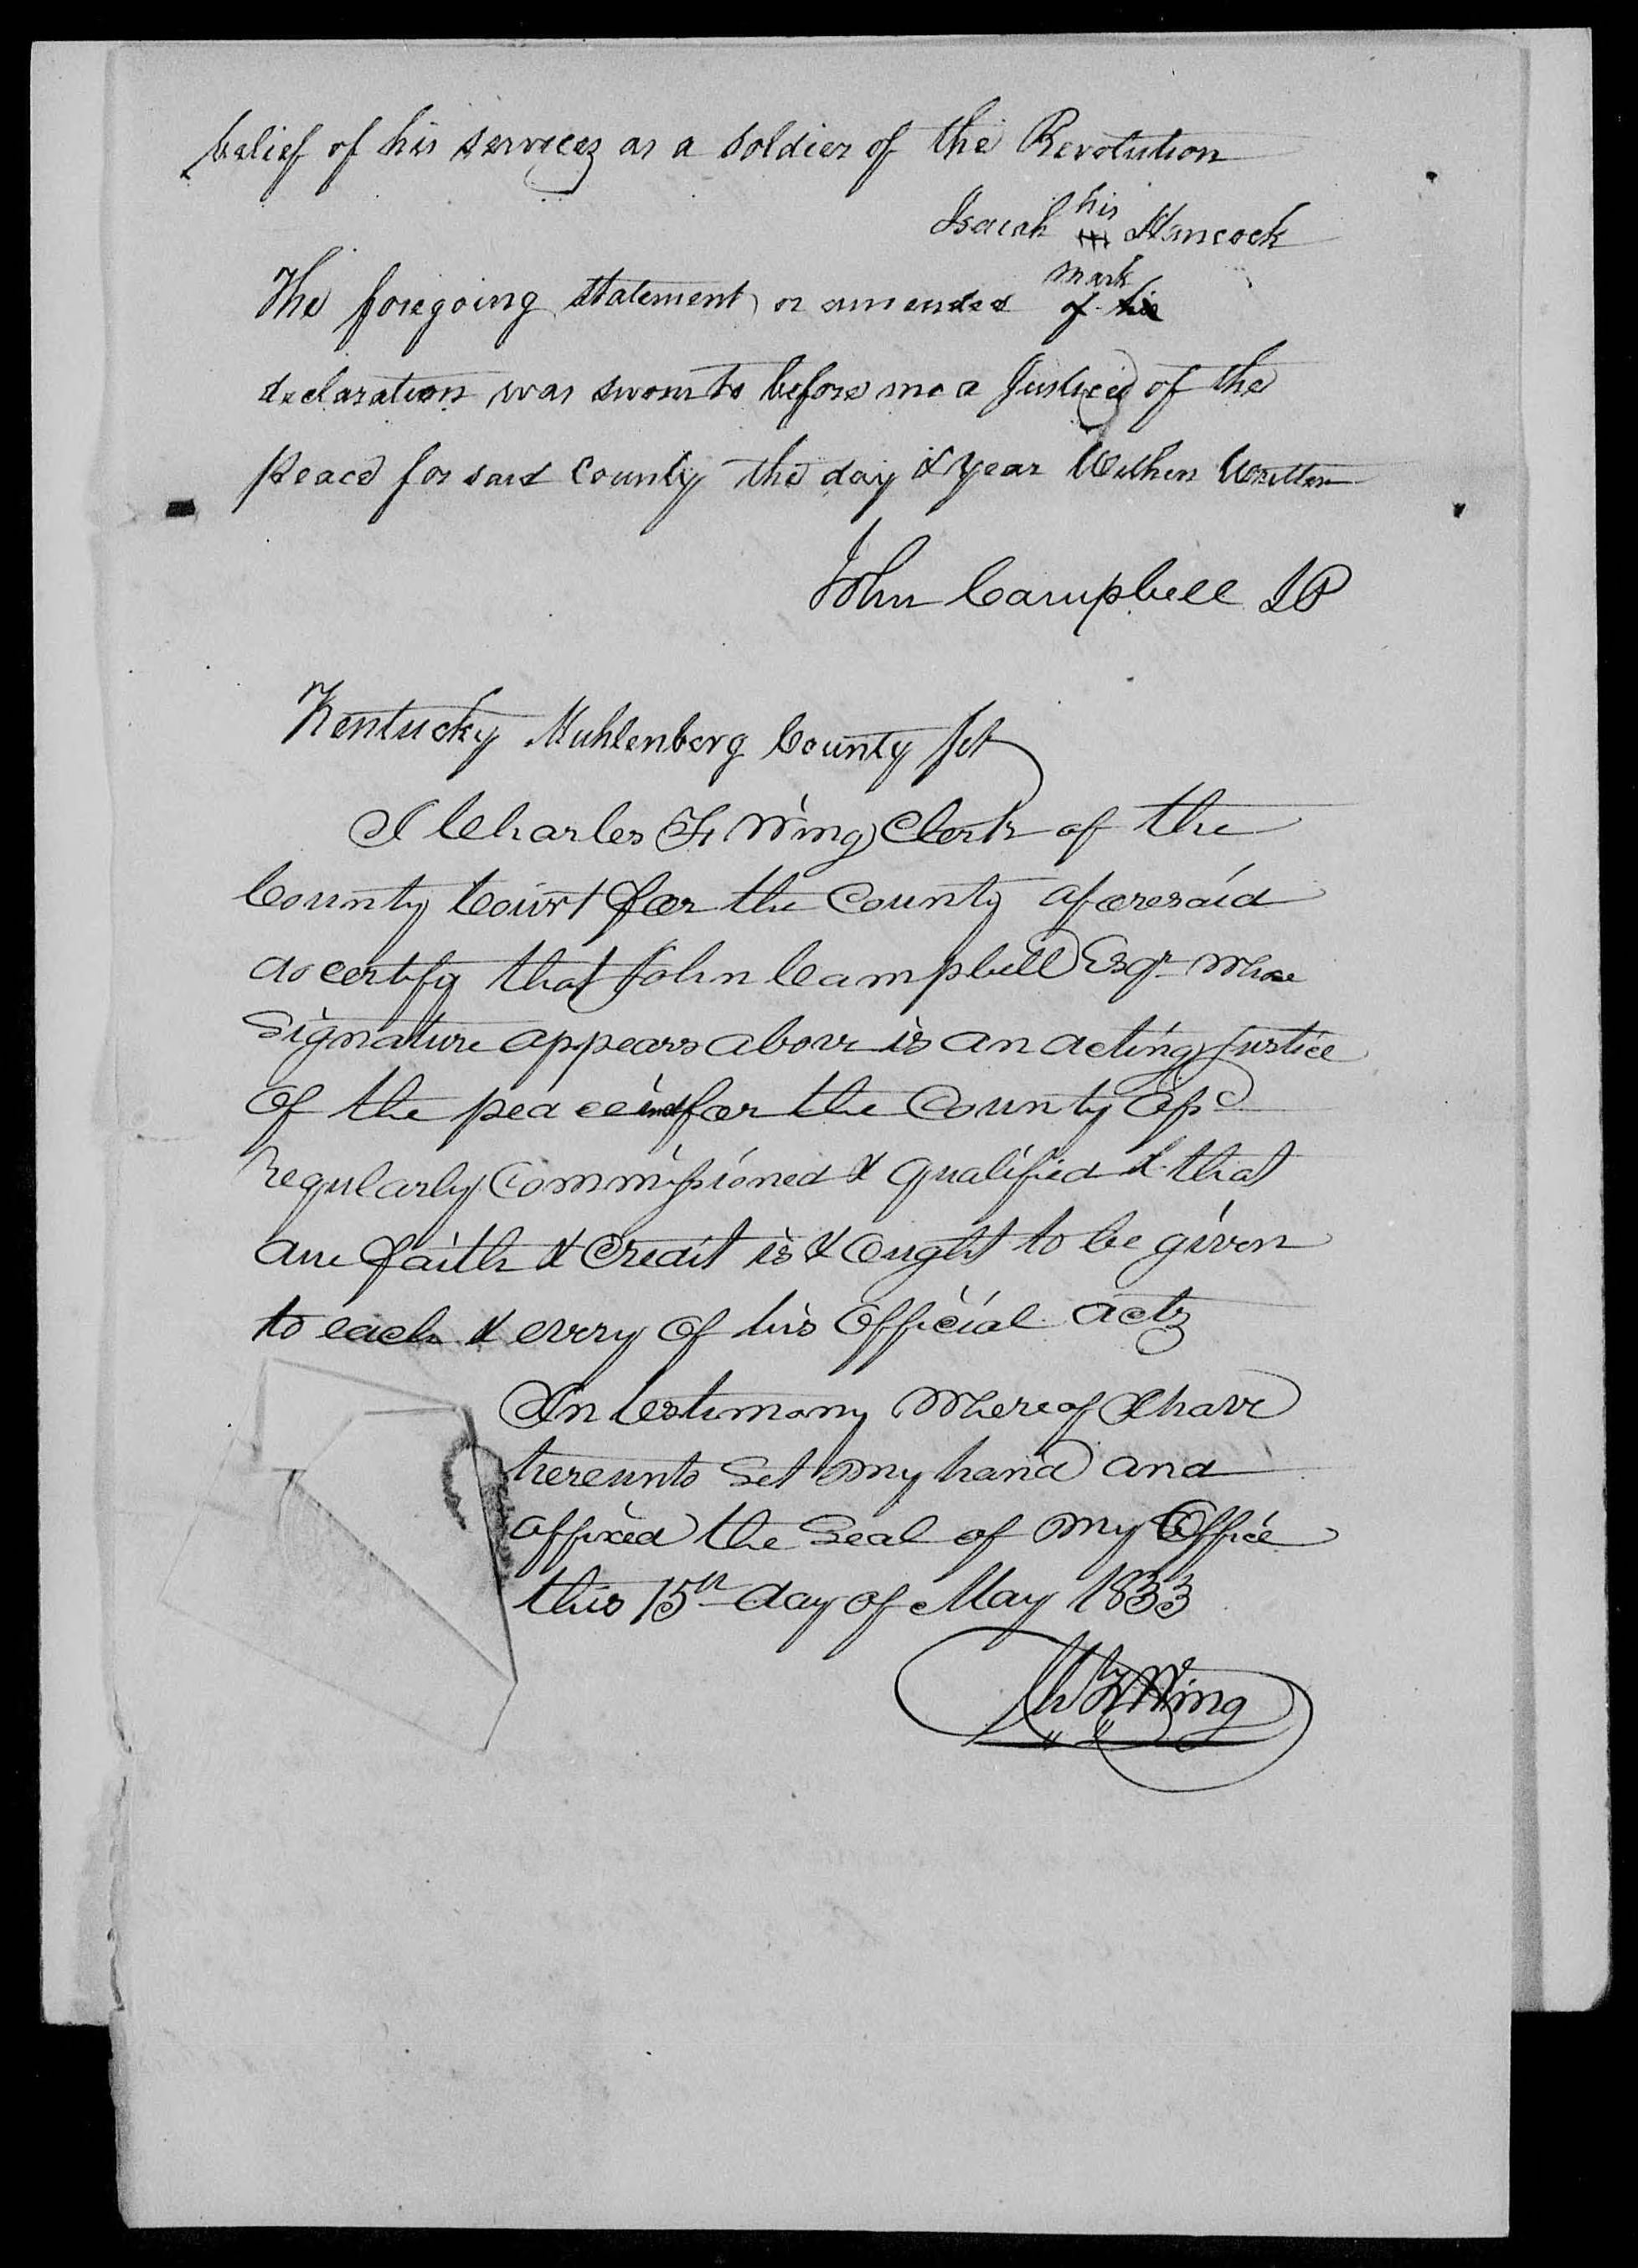 belief of his services as a soldier of the Revolution
his
Isaiah Hancock
mark
The foregoing statement or amended of his
declaration was sworn to before me a Justice of the
peace for said County the day & year Within Written
John Campbell JP
Kentucky Muhlenberg County Sct
I Charles F. Wing Clerk of the
County Court for the County aforesaid
do certify that John Campbell Esqr. Whose
Signature appears above is an acting Justice
of the peace in and for the County afsd.
regularly Commissioned & qualified & that
due faith & Credit is & Ought to be given
to each & every of his Official acts
In testimony Whereof I have
hereunto Set my hand and
affixed the Seal of my Office
this 15th day of May 1833
Ch F Wing